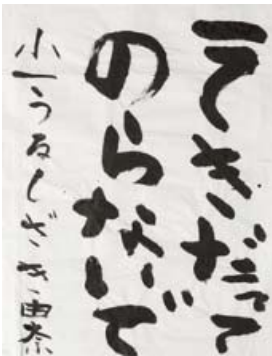 てきだって
のらないで
小一うるしざき由奈